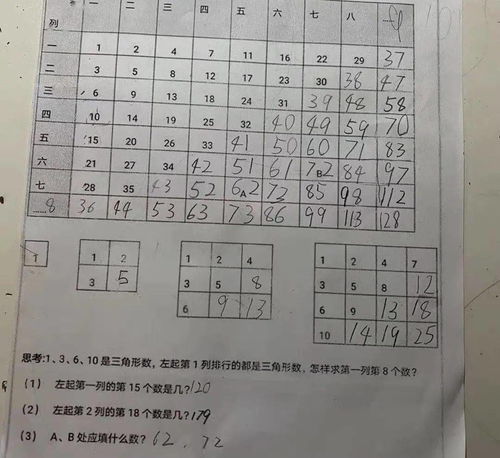 一 二 三 四 五 六 七 八 九
列
一 1 2 4 7 11 16 22 29 37
二 3 5 8 12 17 23 30 38 47
三 6 9 13 18 24 31 39 48 58
四 10 14 19 25 32 40 49 59 70
五 15 20 26 33 41 50 60 71 83
六 21 27 34 42 51 61 7B2 84 97
七 28 35 43 52 6A2 72 85 98 112
……8 36 44 53 63 73 86 99 113 128
1 1 2 1 2 4 1 2 4 7
3 5 3 5 8 3 5 8 12
6 9 13 6 9 13 18
10 14 19 25
思考:1、3、6、10是三角形数，左起第1列排行的都是三角形数，怎样求第一列第8个数?
(1) 左起第一列的第15个数是几?120
(2) 左起第2列的第18个数是几?179
(3) A、B处应填什么数? 62、72